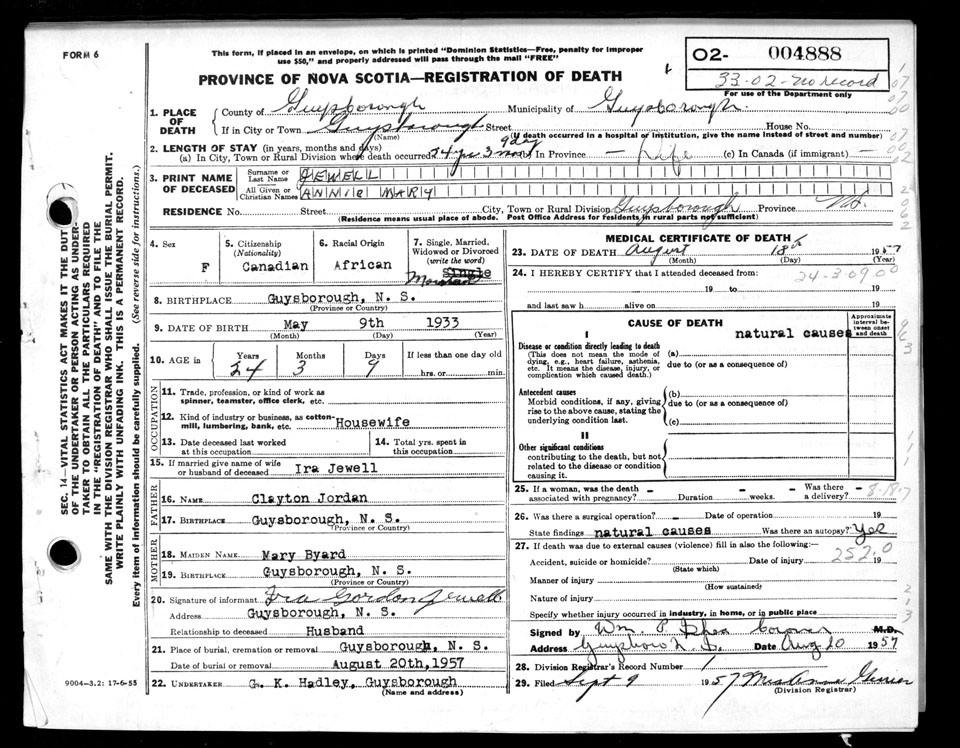 FORM 6
This form, if placed in an envelope, on which is printed "Dominion Statistics—Free, penalty for improper
use $50," and properly addressed will pass through the mail "FREE"
PROVINCE OF NOVA SCOTIA—REGISTRATION OF DEATH
02- 004888
33-02-no record
For use of the Department only
SEC. 14—VITAL STATISTICS ACT MAKES IT THE DUTY
OF THE UNDERTAKER OR PERSON ACTING AS UNDER-
TAKER TO OBTAIN ALL THE PARTICULARS REQUIRED
IN THE "REGISTRATION OF DEATH" AND TO FILE THE
SAME WITH THE DIVISION REGISTRAR WHO SHALL ISSUE THE BURIAL PERMIT.
WRITE PLAINLY WITH UNFADING INK. THIS IS A PERMANENT RECORD.
Every item of information should be carefully supplied. (See reverse side for instructions.)
1. PLACE OF DEATH County of Guysborough Municipality of Guysborough
If in City or Town Guysborough Street House No.
(Name) (If death occurred in a hospital or institution, give the name instead of street and number)
2. LENGTH OF STAY (in years, months and days)
(a) In City, Town or Rural Division where death occurred 24 yrs 3 mos 9 day In Province — Life (c) In Canada (if immigrant) —
3. PRINT NAME OF DECEASED Surname or Last Name JEWELL
All Given or Christian Names ANNIE MARY
RESIDENCE No. Street City, Town or Rural Division Guysborough Province N.S.
(Residence means usual place of abode. Post Office Address for residents in rural parts not sufficient)
4. Sex F
5. Citizenship (Nationality) Canadian
6. Racial Origin African
7. Single, Married, Widowed or Divorced (write the word) Single Married
8. BIRTHPLACE Guysborough, N. S.
(Province or Country)
9. DATE OF BIRTH May 9th 1933
(Month) (Day) (Year)
10. AGE in Years 24 Months 3 Days 9 If less than one day old
hrs. or min.
OCCUPATION
11. Trade, profession, or kind of work as spinner, teamster, office clerk, etc.
12. Kind of industry or business, as cotton-mill, lumbering, bank, etc. Housewife
13. Date deceased last worked at this occupation
14. Total yrs. spent in this occupation
15. If married give name of wife or husband of deceased Ira Jewell
FATHER
16. NAME Clayton Jordan
17. BIRTHPLACE Guysborough, N. S.
(Province or Country)
MOTHER
18. MAIDEN NAME Mary Byard
19. BIRTHPLACE Guysborough, N. S.
(Province or Country)
20. Signature of informant Ira Gordon Jewell
Address Guysborough, N. S.
Relationship to deceased Husband
21. Place of burial, cremation or removal Guysborough, N. S.
Date of burial or removal August 20th,1957
22. UNDERTAKER G. K. Hadley, Guysborough
(Name and address)
9004-3.2: 17-6-55
MEDICAL CERTIFICATE OF DEATH
23. DATE OF DEATH August 18th 1957
(Month) (Day) (Year)
24. I HEREBY CERTIFY that I attended deceased from:
24-3-09.00
19 to 19
and last saw h alive on 19
CAUSE OF DEATH
Approximate interval between onset and death
I
natural causes
Disease or condition directly leading to death (a)
(This does not mean the mode of dying, e.g., heart failure, asthenia, etc. It means the disease, injury, or complication which caused death.)
due to (or as a consequence of)
Antecedent causes (b)
Morbid conditions, if any, giving rise to the above cause, stating the underlying condition last.
due to (or as a consequence of)
(c)
II
Other significant conditions
contributing to the death, but not related to the disease or condition causing it.
25. If a woman, was the death associated with pregnancy? - Duration - weeks. Was there a delivery? -
26. Was there a surgical operation? - Date of operation 19
State findings natural causes Was there an autopsy? Yes
27. If death was due to external causes (violence) fill in also the following:—
252.0
Accident, suicide or homicide? Date of injury 19
(State which)
Manner of injury
(How sustained)
Nature of injury
Specify whether injury occurred in industry, in home, or in public place
Signed by Wm P Coroner M.D.
Address Guysboro N.S. Date Aug 20 1957
28. Division Registrar's Record Number 1
29. Filed Sept 9 1957
(Division Registrar)